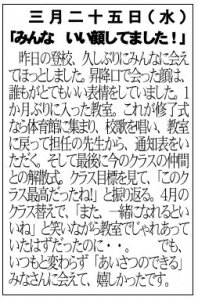 三月二十五日(水)
「みんな いい顔してました!」
昨日の登校、久しぶりにみんなに会え
てほっとしました。昇降口で会った顔は、
誰もがとてもいい表情をしていました。1
か月ぶりに入った教室。これが修了式
なら体育館に集まり、校歌を唱い、教室
に戻って担任の先生から、通知表をい
ただく。そして最後に今のクラスの仲間
との解散式。クラス目標を見て、「このク
ラス最高だったね!」と振り返る。4月の
クラス替えで、「また、一緒になれるとい
いね」と笑いながら教室でしゃれあって
いたはずだったのに・・。 でも、
いつもと変わらず「あいさつのできる」
みなさんに会えて、嬉しかったです。